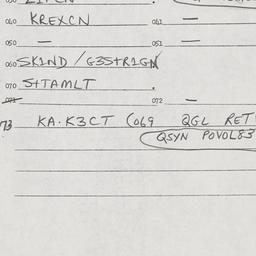 060 KREXCN 061 —
050 — 051 —
060 SKIND / G3STRIGN
070 STAMLT .
071 072 —
73 KA·K3CT (069 QGL RET
QSYN POVOL83